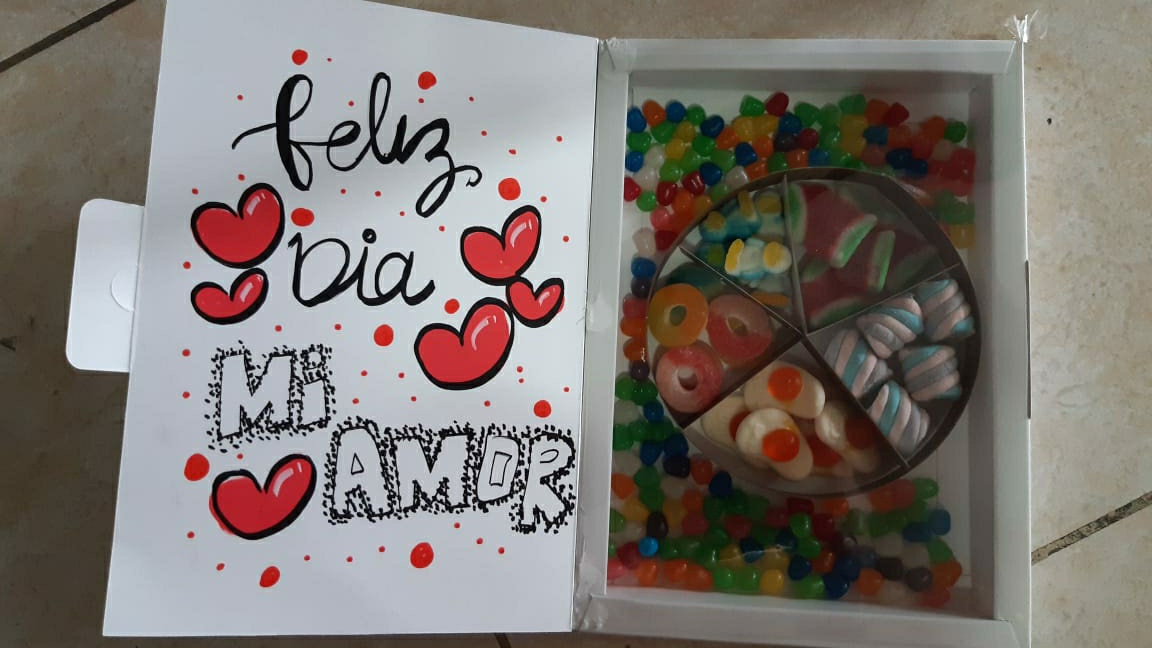 feliz
Dia
Mi
AMOR